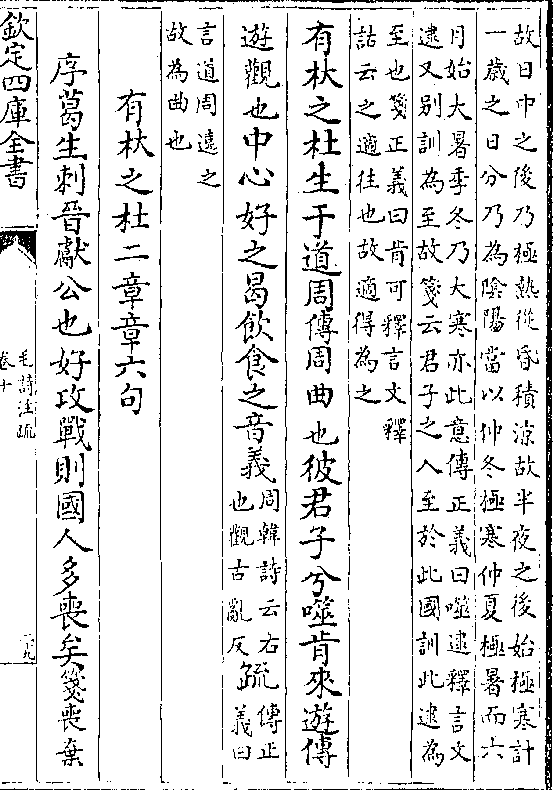 故日中之後乃極熱從昏積涼故半夜之後始極寒計
一歲之日分乃為陰陽當以仲冬極寒仲夏極暑而六
月始大暑季冬乃大寒亦此意傳正義曰噬逮釋言文
逮又别訓為至故箋云君子之人至於此國訓此逮為
至也箋正義曰肯可釋言文釋
詁云之適往也故適得為之
有杕之杜生于道周傳周曲也彼君子兮噬肯來遊傳
遊觀也中心好之曷飲食之音義
周韓詩云右
也觀古亂反
疏
傳正
義曰
言道周遠之
故為曲也
有杕之杜二章章六句
序葛生刺晉獻公也好攻戰則國人多喪矣箋喪棄
欽定四庫全書
毛詩注疏
卷十
二九